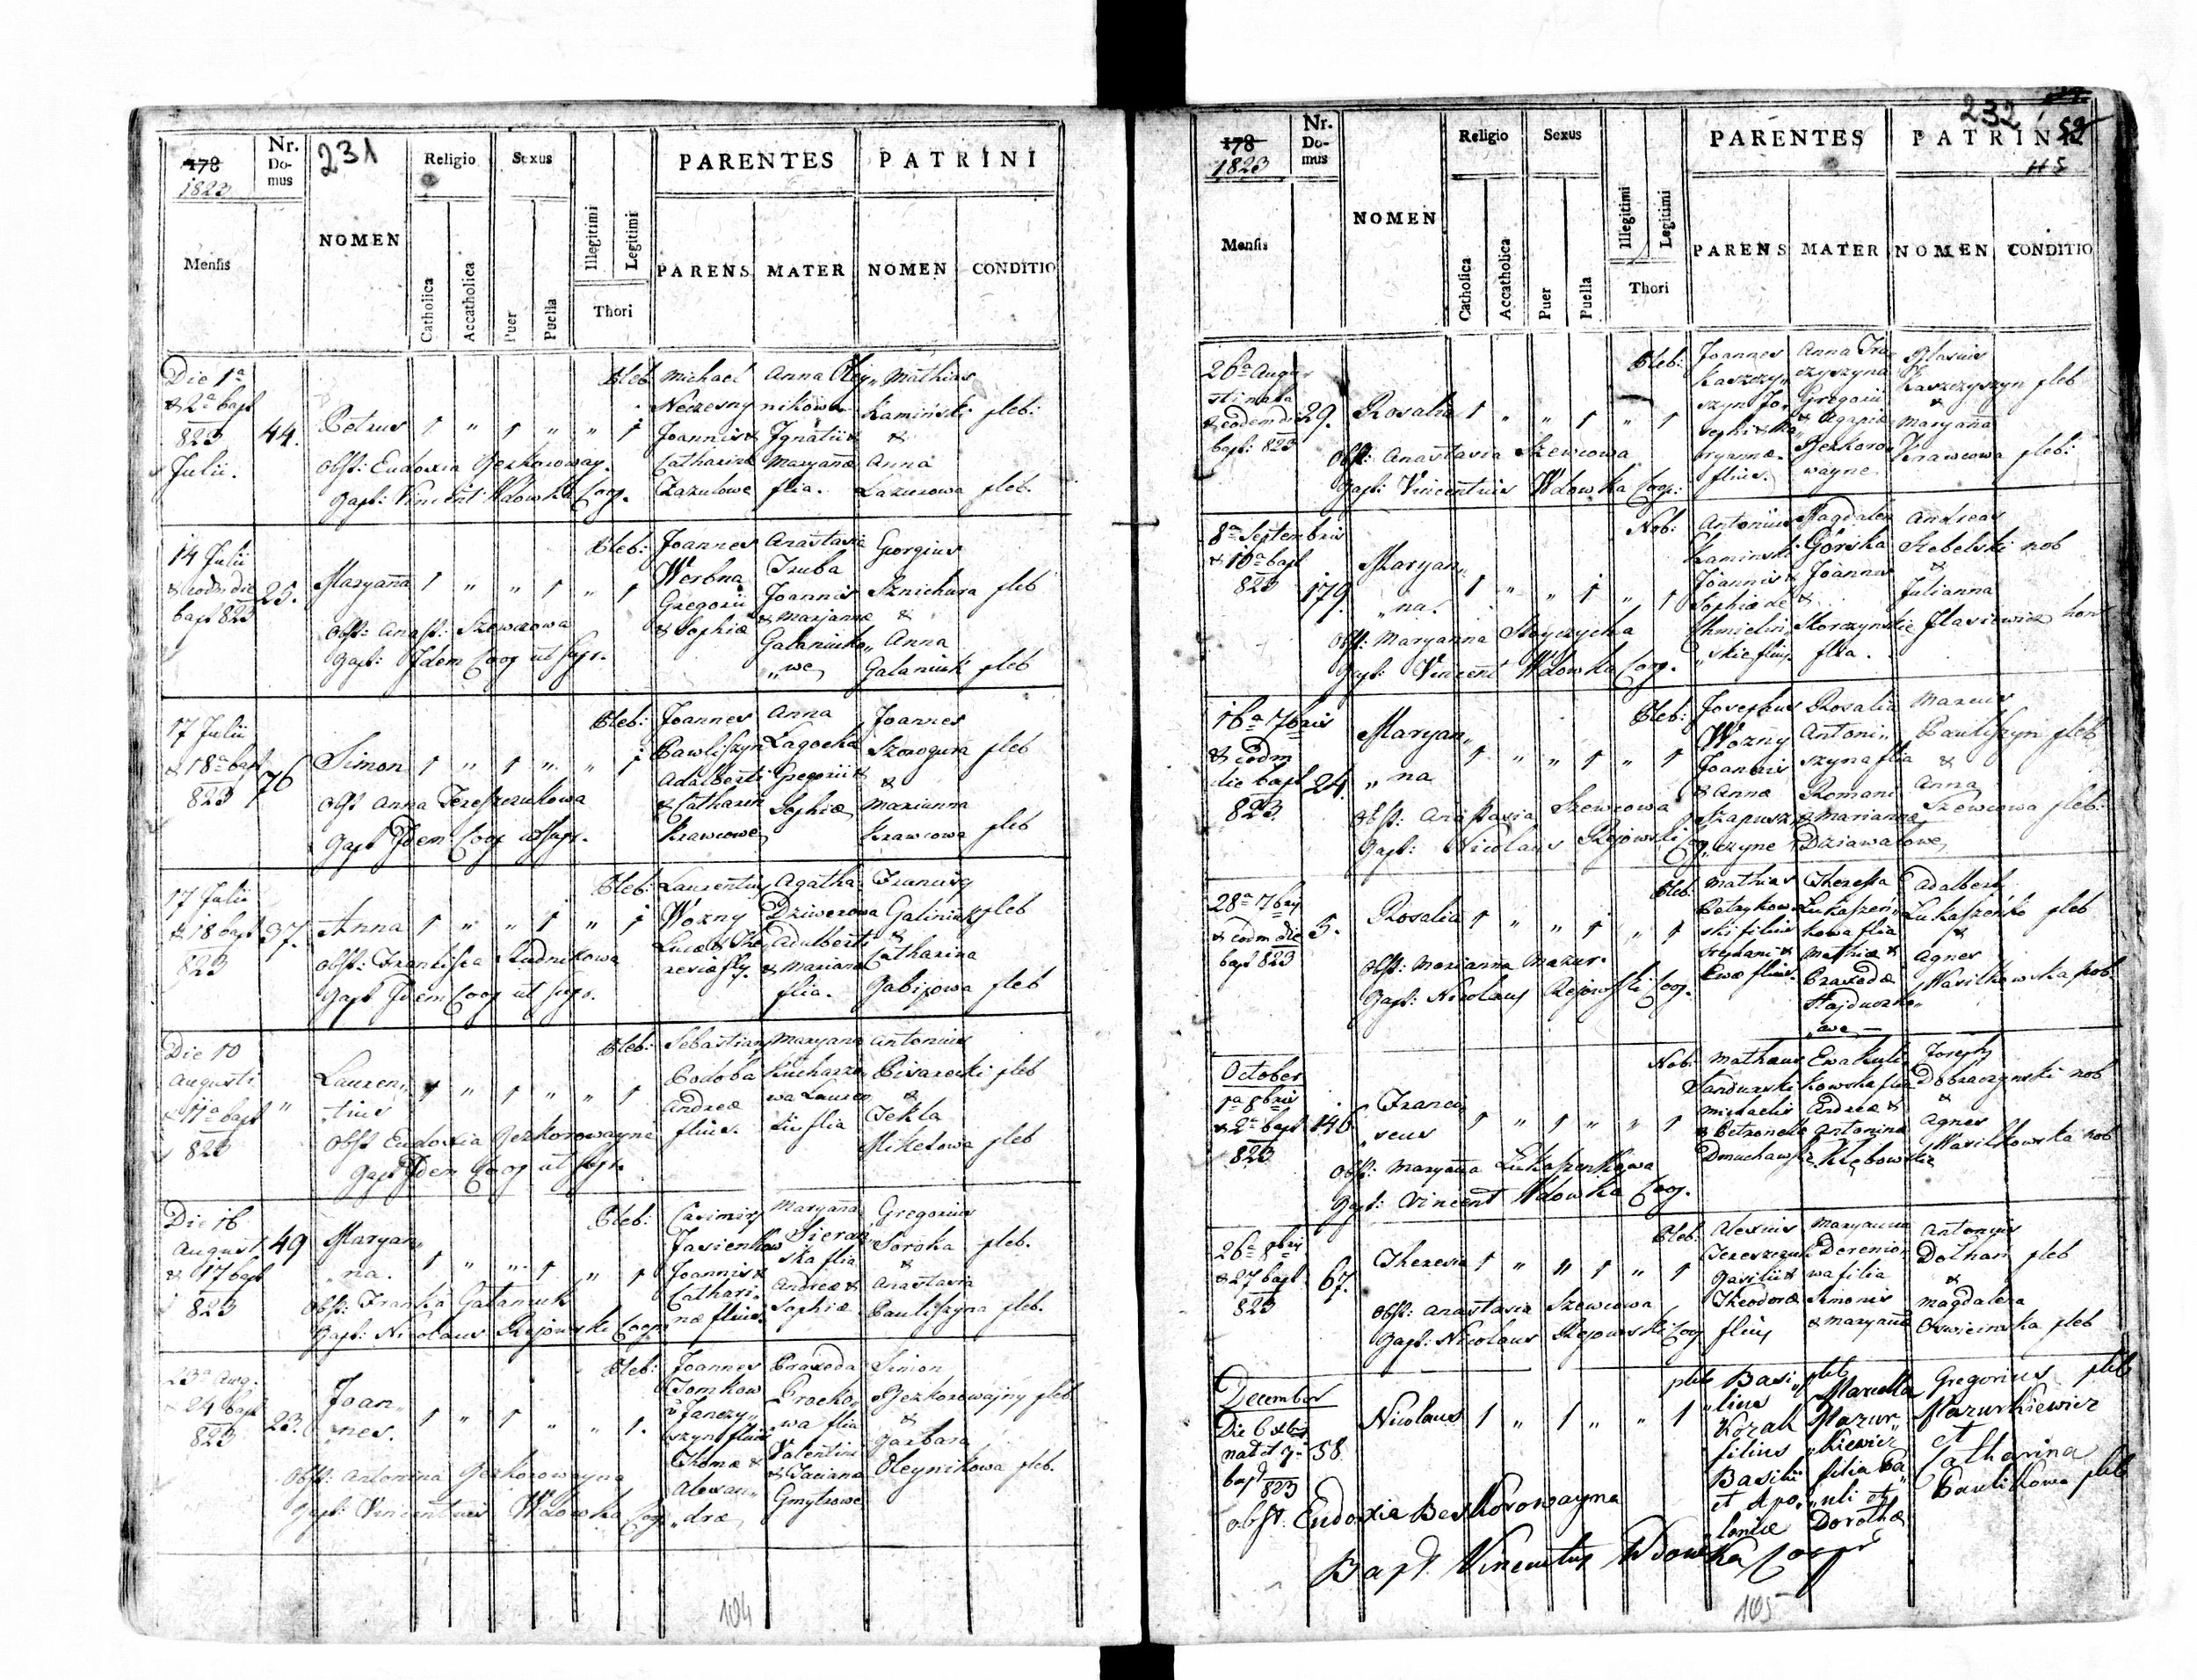 231
178
1823
Nr.
Do-
mus
Religio
Sexus
PARENTES
PATRINI
Mensis
NOMEN
Catholica
Accatholica
Puer
Puella
Illegitimi
Legitimi
Thori
PARENS
MATER
NOMEN
CONDITIO
Die 1a
& 2a bapt
823
Julii.
44.
Petrus 1 " 1 " " 1
Obst: Eudoxia Bezkoroway.
Bapt: Vincent Wdowka Coop.
Pleb
Michael
Neczesny
Joannis &
Catharinæ
Zazulowe
Anna Oley„
nikowa
Ignatii &
Maryannæ
flia.
Mathias
Kaminski pleb:
&
Anna
Lazurowa pleb.
14 Julii
& eodm die
bapt 823
25.
Maryanna 1 " " 1 " 1
Obst: Anast: Szewcowa
Bapt: Idem Coop ut supr.
Pleb:
Joannes
Werbna
Gregorii
& Sophiæ
Anastasia
Truba
Joannis
& Marjannæ
Galaniuko„
„we
Georgius
Sznichura pleb
&
Anna
Galaniuk pleb
17 Julii
& 18a bapt
823
76
Simon 1 " 1 " " 1
Obst Anna Tereszczukowa
Bapt Idem Coop ut supr.
Pleb:
Joannes
Pawliszyn
Adalberti
& Catharin
Krawcowe
Anna
Lagocka
Gregorii &
Sophiæ
Joannes
Szorogura pleb
&
Marianna
Krawcowa pleb
17 Julii
& 18 bapt
823
37.
Anna 1 " " 1 " 1
Obst: Franciska Rudnikowa
Bapt Idem Coop ut supr.
Pleb:
Laurentius
Wozny
Lucæ & The„
resiæ fly.
Agatha
Dziwerowa
Adalberti
& Marianæ
flia.
Franciscq
Galiniuk pleb
&
Catharina
Babijowa pleb
Die 10
Augusti
& 11a bapt
823
"
Lauren„
„tius 1 " 1 " " 1
Obst Eudoxia Bezkorowayna
Bapt Idem Coop ut supr.
Pleb:
Sebastianus
Podoba
Andreæ
flius.
Maryana
Kucharzo„
wa Lauren
tii flia
Antonius
Pisarecki pleb
&
Tekla
Mikelowa pleb
Die 16
August
& 17 bapt
823
49
Maryan„
„na. 1 " " 1 " 1
Obst: Franka Galaniuk
Bapt: Nicolaus Rejowski Coop
Pleb:
Casimirus
Jasienkow
Joannis &
Cathari„
næ flius.
Maryana
Sieran„
ska flia
Andreæ &
Sophiæ
Gregorius
Soroka pleb.
&
Anastasia
Pauliszyna pleb.
23a Aug.
24 bapt
823
23.
Joan„
nes. 1 " 1 " " 1.
Obst: Antonina Bezkorowayna
Bapt: Vincentius Wdowka Coop
Pleb:
Joannes
Tomkow
v Janczy„
szyn flius
Thomæ &
Alexan„
„dræ
Praxeda
Procko„
wa flia
Valentini
& Tacianæ
Gmytrowe
Simon
Bezkorowajny pleb
&
Barbara
Oleynikowa pleb.
104
232
59
H5
178
1823
Nr.
Do-
mus
Religio
Sexus
PARENTES
PATRINI
Mensis
NOMEN
Catholica
Accatholica
Puer
Puella
Illegitimi
Legitimi
Thori
PARENS
MATER
NOMEN
CONDITIO
26a Augu„
sti nata
& eodem di
bapt: 823
29.
Rosalia 1 " " 1 " 1
Obst: Anastasia Szewcowa
Bapt: Vincentius Wdowka Coop:
Pleb:
Joannes
Kaszczy„
szyn Jo„
sephi & Ma„
ryannæ
flius.
Anna Tru„
czyszyna
Gregorii
& Agapiæ
Bezkoro„
wayne
Blasius
Kaszczyszyn pleb
&
Maryana
Krawcowa pleb:
8a Septembris
& 10a bapt
823
179.
Maryan„
„na. 1 " " 1 " 1
Obst: Maryanna Stoyczycha
Bapt: Vincent Wdowka Coop.
Nob:
Antonius
Kaminski
Joannis &
Sophiæ de
Chmielin„
„skie flius
Magdalena
Górska
Joannis
&
Skorczynskie
flia.
Andreas
Szebelski nob
&
Julianna
Ilasiewicz hon
16a 7bris
& eodm
die bapt
823.
24.
Maryan„
„na 1 " " 1 " 1
Obst: Anastasia Szewcowa
Bapt: Nicolaus Rejowski Coo„
Pleb:
Josephus
Wozny
Joannis
& Annæ
Szapusz„
„czyne
Rosalia
Antoni„
szyna flia
Romani
& Marianna
Dziawalowe
Marcus
Pauliszyn pleb
&
Anna
Szewcowa pleb:
28a 7bris
& eodm die
bapt 823
5.
Rosalia 1 " " 1 " 1
Obst: Marianna Mazur.
Bapt: Nicolaus Rejowski Coop.
Pleb:
Mathias
Petrykow„
ski filius
Stephani &
Evæ flius.
Theressa
Lukaszen„
kowa flia
Mathiæ &
Praxedæ
Hajduczko„
„we
Adalbert
Lukaszenko pleb
&
Agnes
Wasilkowska nob
October
1a 8bris
& 2a bapt
823
146
Franci„
„scus 1 " 1 " " 1
Obst: Maryanna Lukaszenkowa
Bapt: Vincent Wdowka Coop.
Nob:
Mathæus
Sandurski
Michaelis
& Petronelæ
Dmuchowskie
Eva Kuli„
kowska flia
Andreæ &
Antoninæ
Kłębowskie
Joseph
Dobraczynski nob
&
Agnes
Wasilkowska nob
26a 8bris
& 27 bapt
823
67.
Theresia 1 " " 1 " 1
Obst: Anastasia Szewcowa
Bapt: Nicolaus Rejowski Coop
Pleb:
Alexius
Tereszczuk
Basilii &
Theodoræ
flius
Maryanna
Derenio„
wa filia
Simonis
& Maryannæ
Antonius
Dothan pleb
&
Magdalena
Oswiecinska pleb
December
Die 6 xbris
nat et 7a
bapt 823
58
Nicolaus 1 " 1 " " 1
obst. Eudoxia Beskorowayna
Bapt. Vincentius Wdowka Coopr
pleb
Basi„
„lius
Kozak
filius
Basilii
et Apo„
„loniæ
pleb
Marcella
Mazur„
„kiewicz
filia Pa„
„uli et
Dorothæ
Gregorius pleb
Mazurkiewicz
et
Catharina
Paulikowa pleb
105